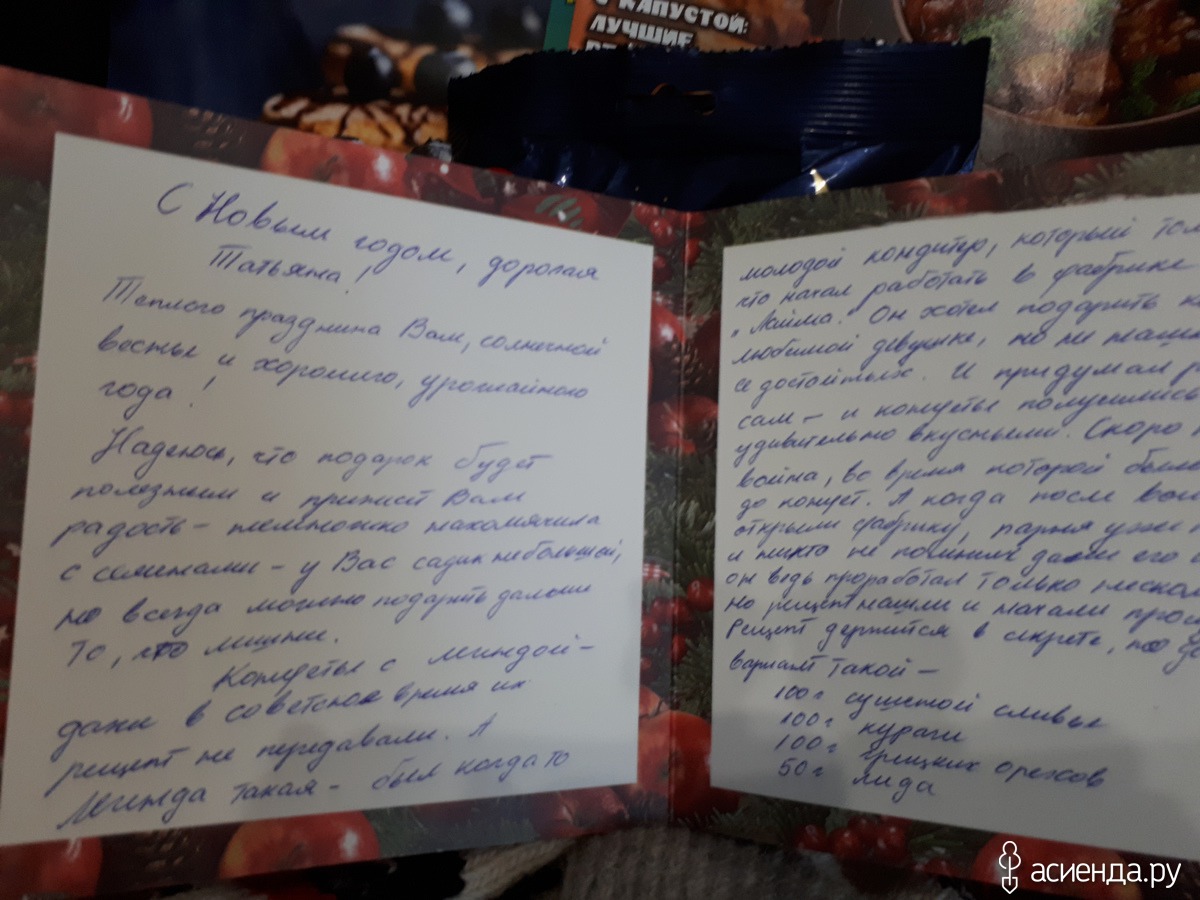 С КАПУСТОЙ:
ЛУЧШИЕ
С Новым годом, дорогая
Татьяна!
Теплого праздника Вам, солнечной
весны и хорошего, урожайного
года!
Надеюсь, что подарок будет
полезным и принесет Вам
радость - немножко нахомячила
с семенами - у Вас садик небольшой,
но всегда можно подарить дальше
то, что лишнее.
Конфеты с легендой -
даже в советское время их
рецепт не передавали. А
Легенда такая - был когда то
молодой кондитер, который
что начал работать в фабрике
"Лайма." Он хотел подарить
любимой девушке, но не
достойных. И придумал
сам - и конфеты получились
удивительно вкусными. Скоро
война, во время которой было
до конфет. А когда после
открыли фабрику, парня уже
и никто не помнил даже его
он ведь проработал только
но рецепт нашли и начали
Рецепт держится в секрете, но
вариант такой -
100 г сушеной сливы
100 г кураги
100 г грецких орехов
50 г мёда
асиенда.ру